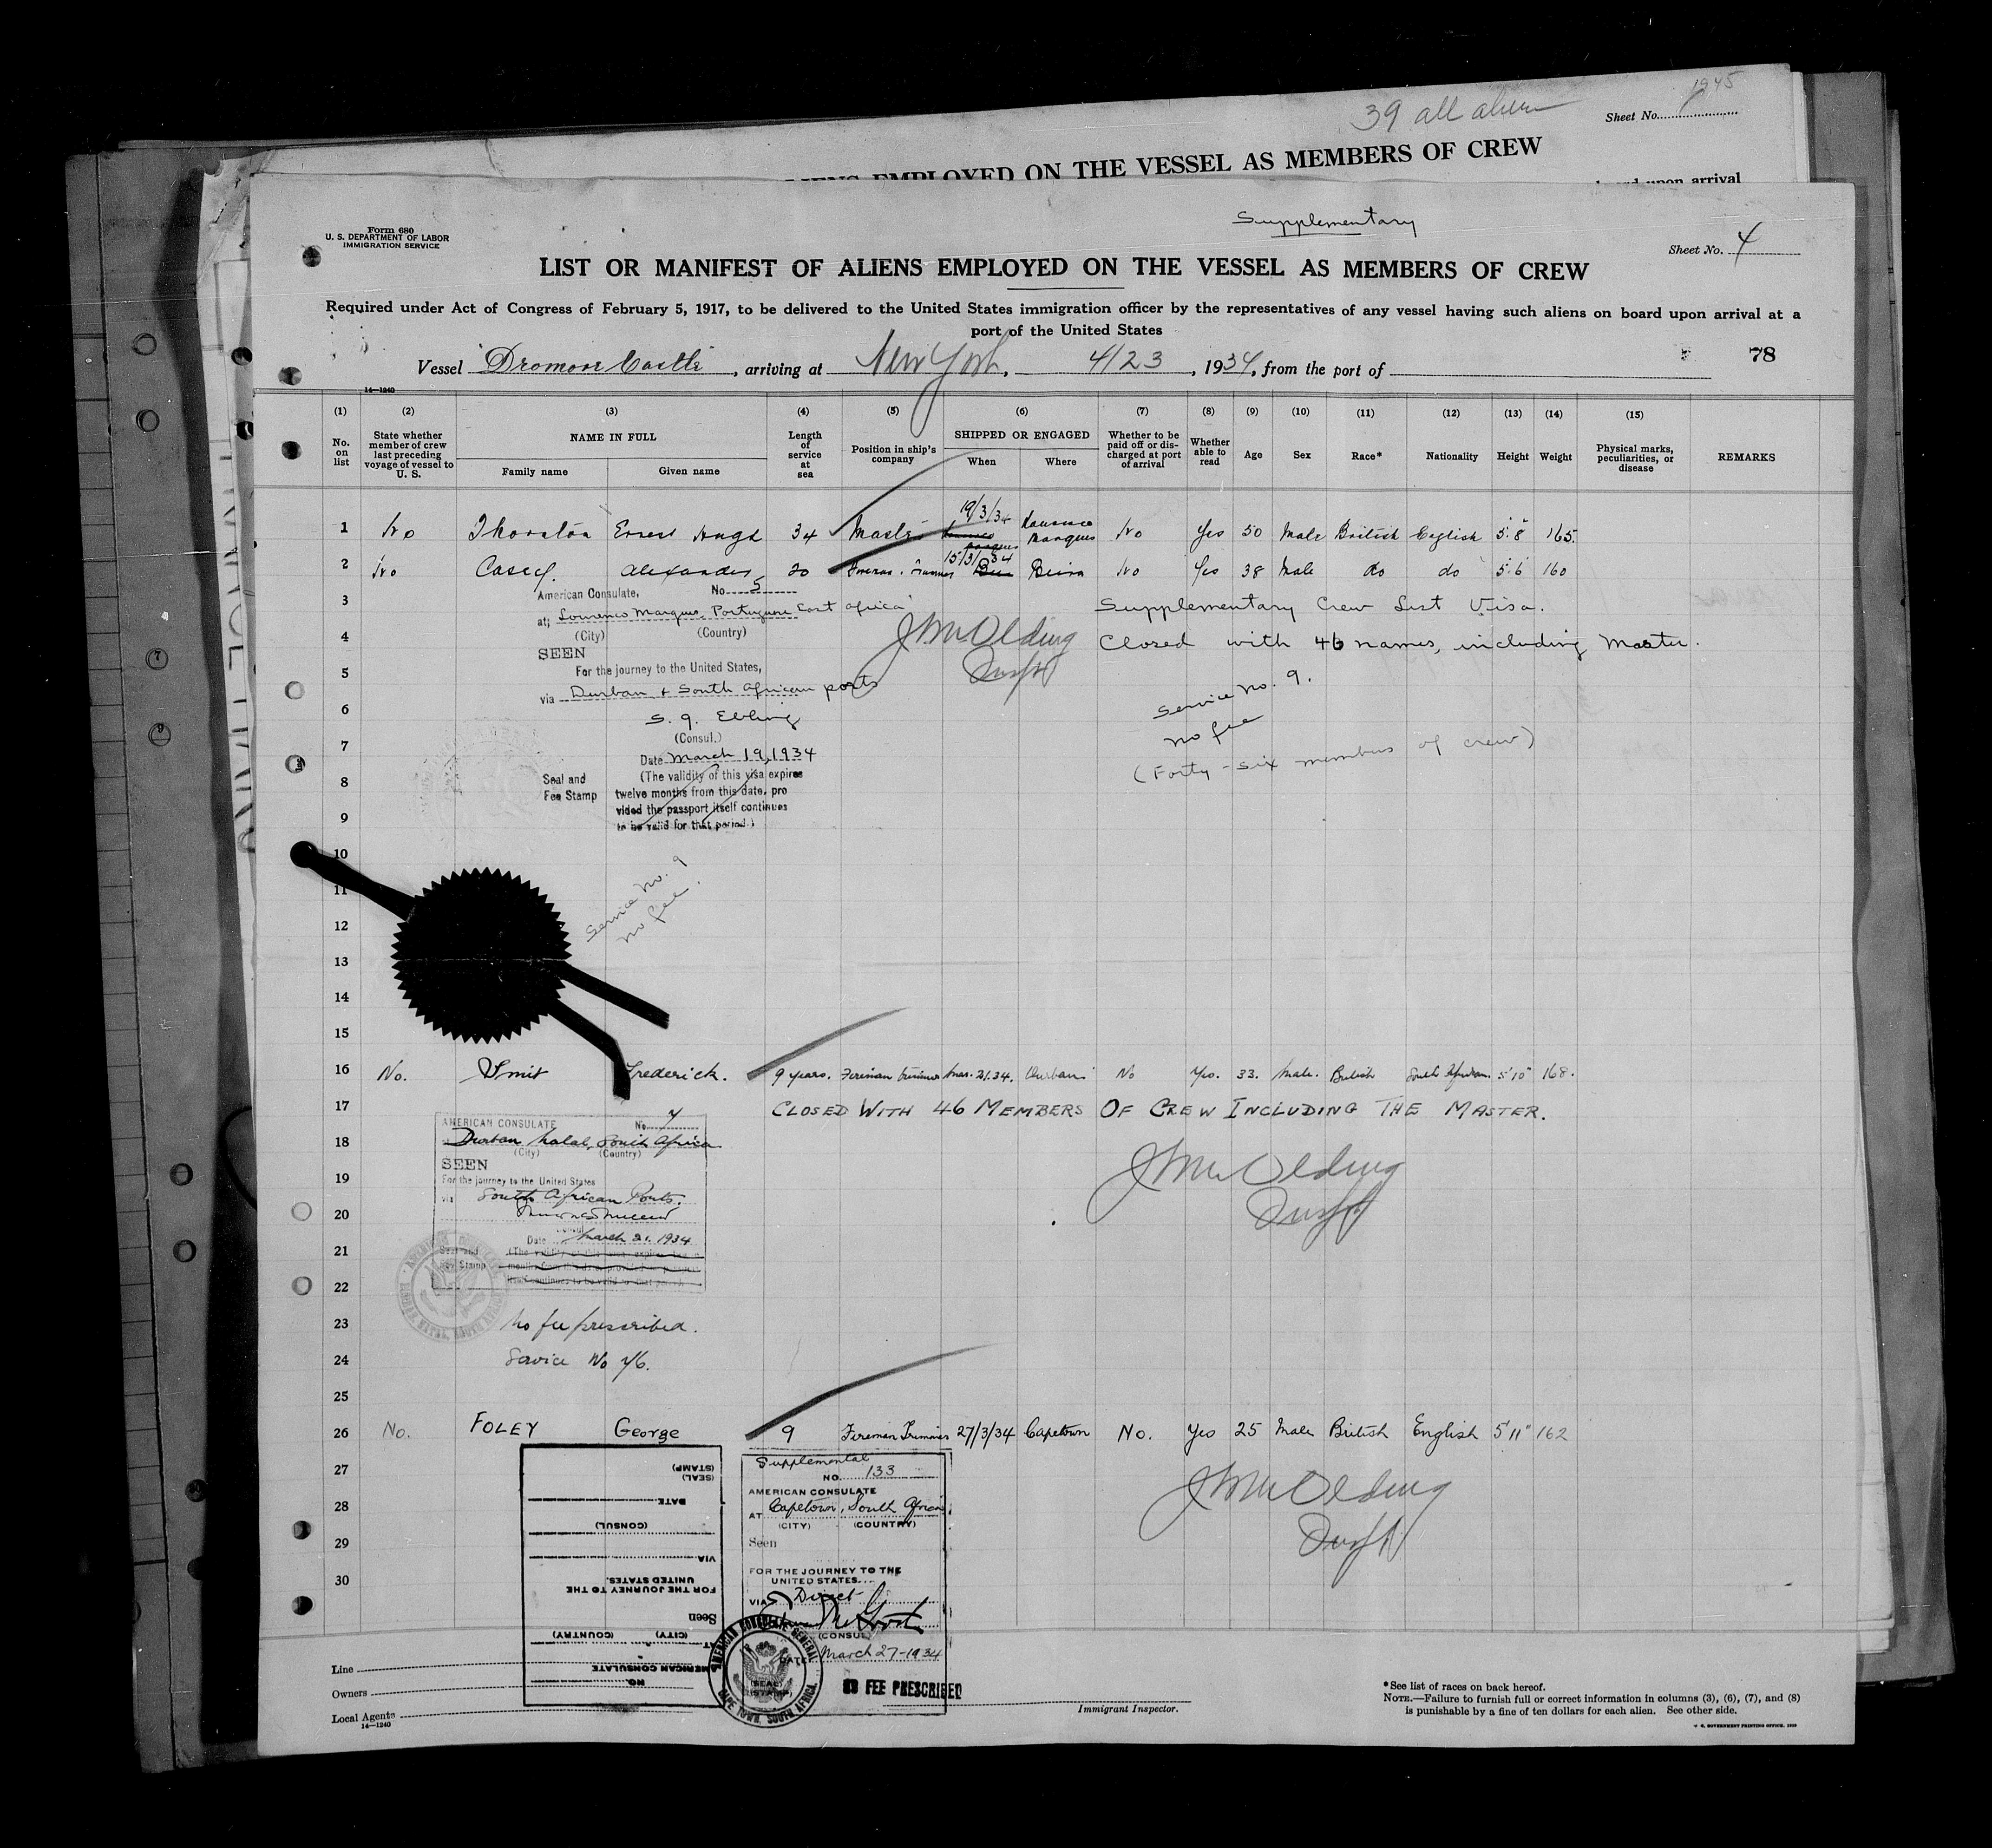 1945
39 all alien
Sheet No.
ALIENS EMPLOYED ON THE VESSEL AS MEMBERS OF CREW
board upon arrival
Form 680
U. S. DEPARTMENT OF LABOR
IMMIGRATION SERVICE
Supplementary
Sheet No. 4
LIST OR MANIFEST OF ALIENS EMPLOYED ON THE VESSEL AS MEMBERS OF CREW
Required under Act of Congress of February 5, 1917, to be delivered to the United States immigration officer by the representatives of any vessel having such aliens on board upon arrival at a
port of the United States
78
Vessel "Dromore Castle", arriving at New York, 4/23, 1934, from the port of
14—1240
(1) (2) (3) (4) (5) (6) (7) (8) (9) (10) (11) (12) (13) (14) (15)
No. on list
State whether member of crew last preceding voyage of vessel to U. S.
NAME IN FULL
Family name
Given name
Length of service at sea
Position in ship's company
SHIPPED OR ENGAGED
When
Where
Whether to be paid off or discharged at port of arrival
Whether able to read
Age
Sex
Race*
Nationality
Height
Weight
Physical marks, peculiarities, or disease
REMARKS
1 No Thornton Ernest Hugh 34 Master 19/3/34 Lourenco Marques No Yes 50 Male British English 5.8" 165.
2 No Casey. Alexander 20 Fireman. Trimmer 15/3/34 Beira No Yes 38 Male do do 5.6 160
3
American Consulate, No. 5
at; Lourenco Marques, Portuguese East Africa
(City) (Country)
SEEN
For the journey to the United States,
via Durban + South African ports
(Consul.)
Date March 19, 1934
Seal and Fee Stamp
(The validity of this visa expires
twelve months from this date, pro
vided the passport itself continues
to be valid for that period.)
Service No. 9
no fee.
Supplementary Crew List Visa.
4 Closed with 46 names, including Master.
5
Service No. 9.
6
no fee
7
(Forty-six members of crew)
8
9
10
11
12
13
14
15
16 No. Smit Frederick. 9 years. Fireman trimmer Mar. 21.34. Durban No Yes. 33. Male. British South African. 5'10" 168.
17 CLOSED WITH 46 MEMBERS OF CREW INCLUDING THE MASTER.
AMERICAN CONSULATE No. 7
18 Durban Natal, South Africa
(City) (Country)
SEEN
19 For the journey to the United States
via South African Ports.
20
Date March 21. 1934
21
Seal and
Fee Stamp
22
23 No fee prescribed.
24
25
26 No. FOLEY George 9 Fireman Trimmer 27/3/34 Capetown No. Yes 25 Male British English 5'11" 162
27
28
29
30
Supplemental
NO. 133
AMERICAN CONSULATE
AT Capetown, South Africa
(CITY) (COUNTRY)
Seen
FOR THE JOURNEY TO THE
UNITED STATES
VIA Direct
(CONSUL)
DATE March 27-1934
(SEAL)
(STAMP)
NO FEE PRESCRIBED
AMERICAN CONSULATE GENERAL
CAPE TOWN, SOUTH AFRICA.
NO.
AMERICAN CONSULATE
AT
(CITY) (COUNTRY)
Seen
FOR THE JOURNEY TO THE
UNITED STATES.
VIA
(CONSUL)
DATE
(SEAL)
(STAMP)
Line
Owners
Local Agents
14—1240
Immigrant Inspector.
*See list of races on back hereof.
NOTE.—Failure to furnish full or correct information in columns (3), (6), (7), and (8)
is punishable by a fine of ten dollars for each alien. See other side.